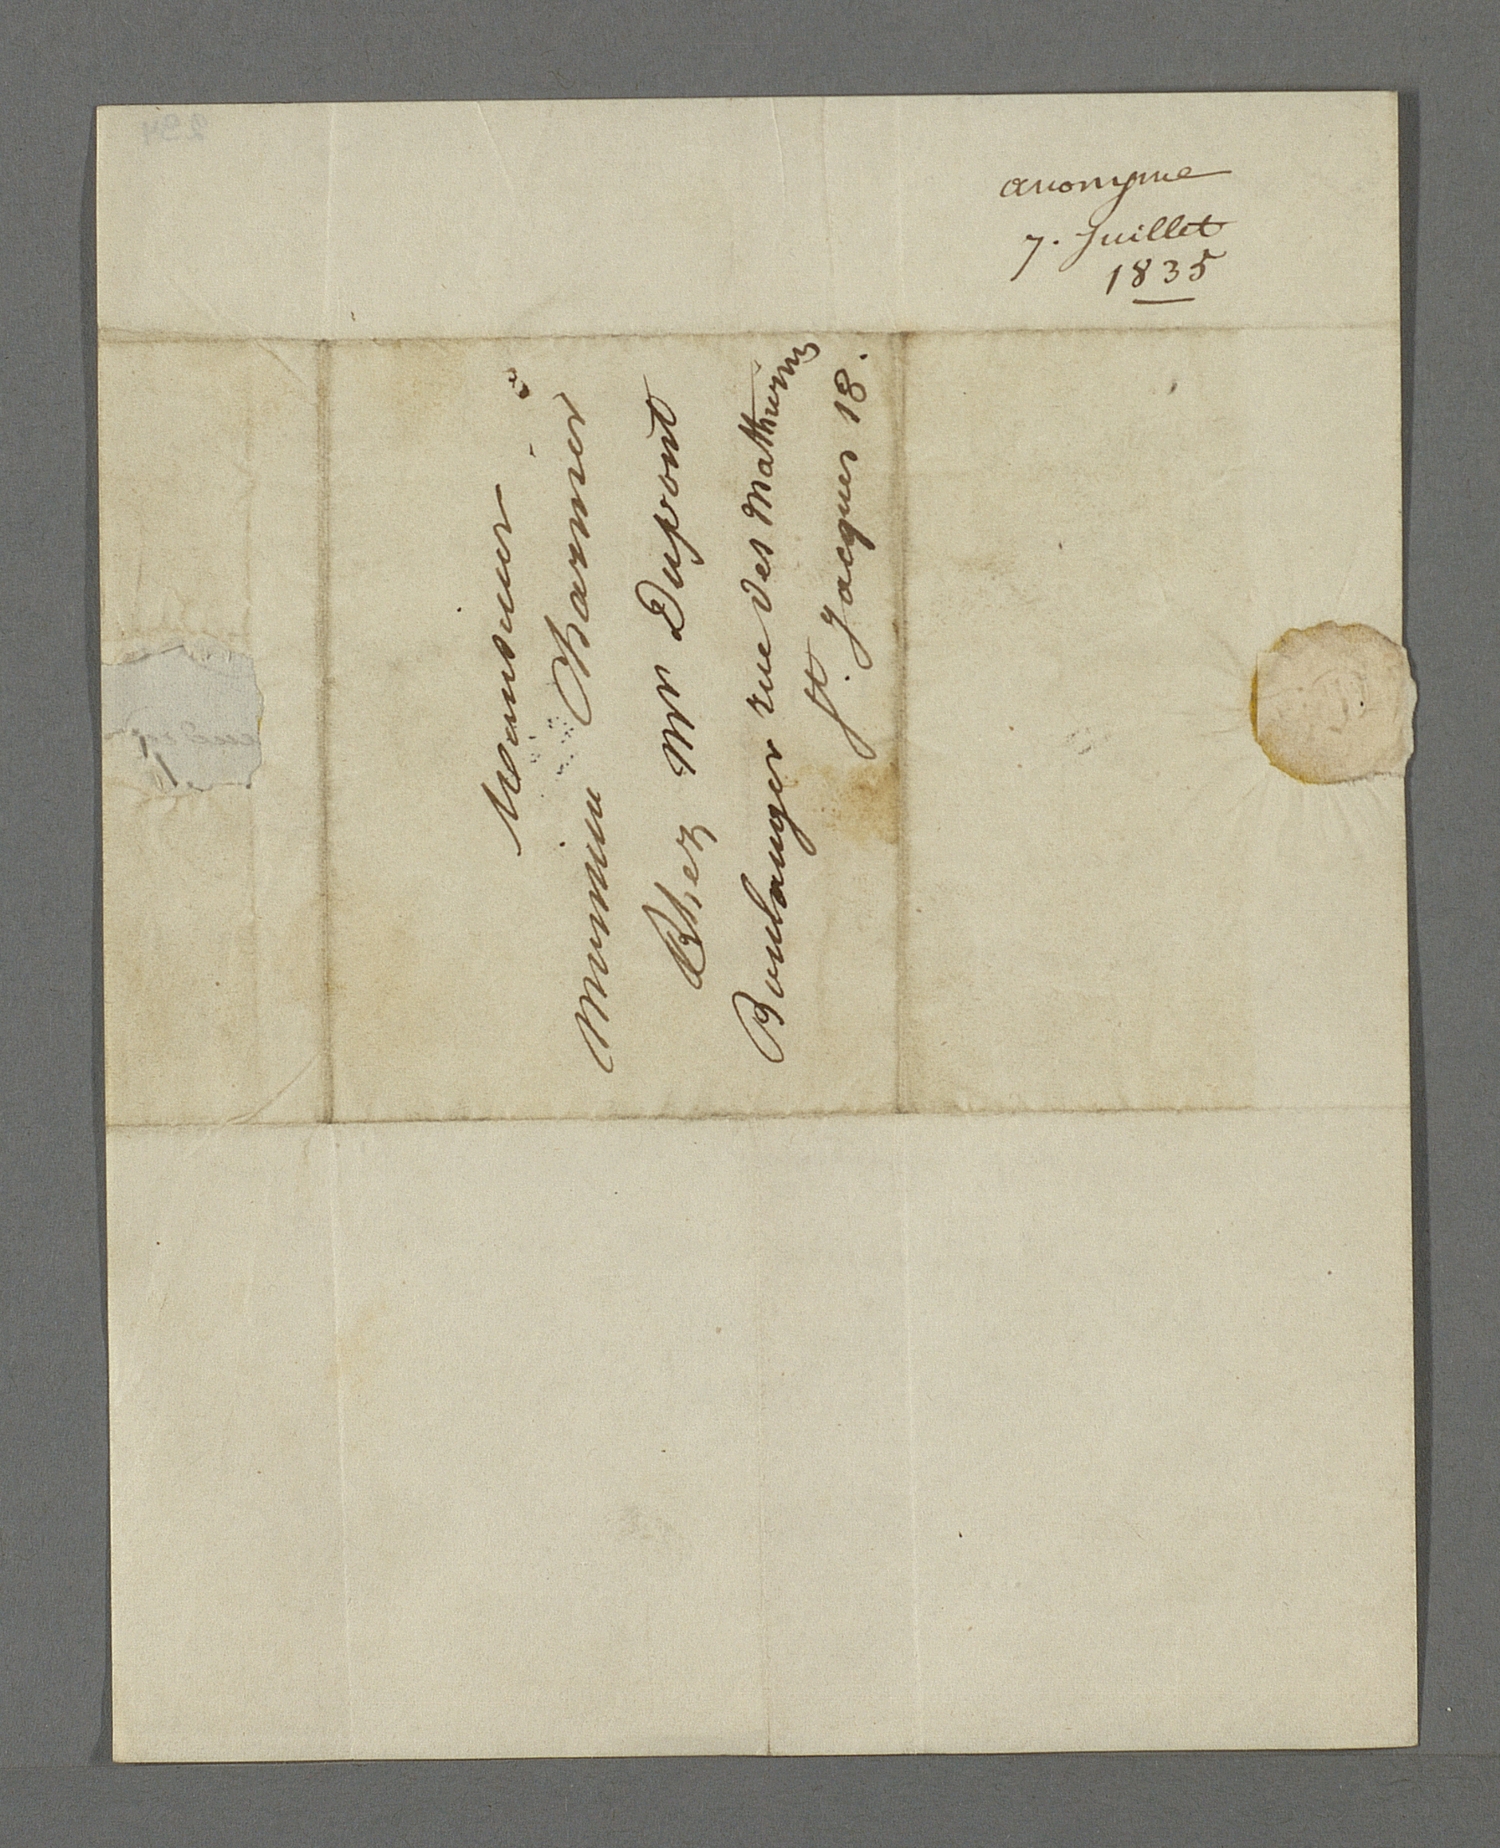 anonyme
7. Juillet
1835
Monsieur
Charnier
Chez Mr Dupont
Boulanger rue des Mathurins
St. Jacques 18.